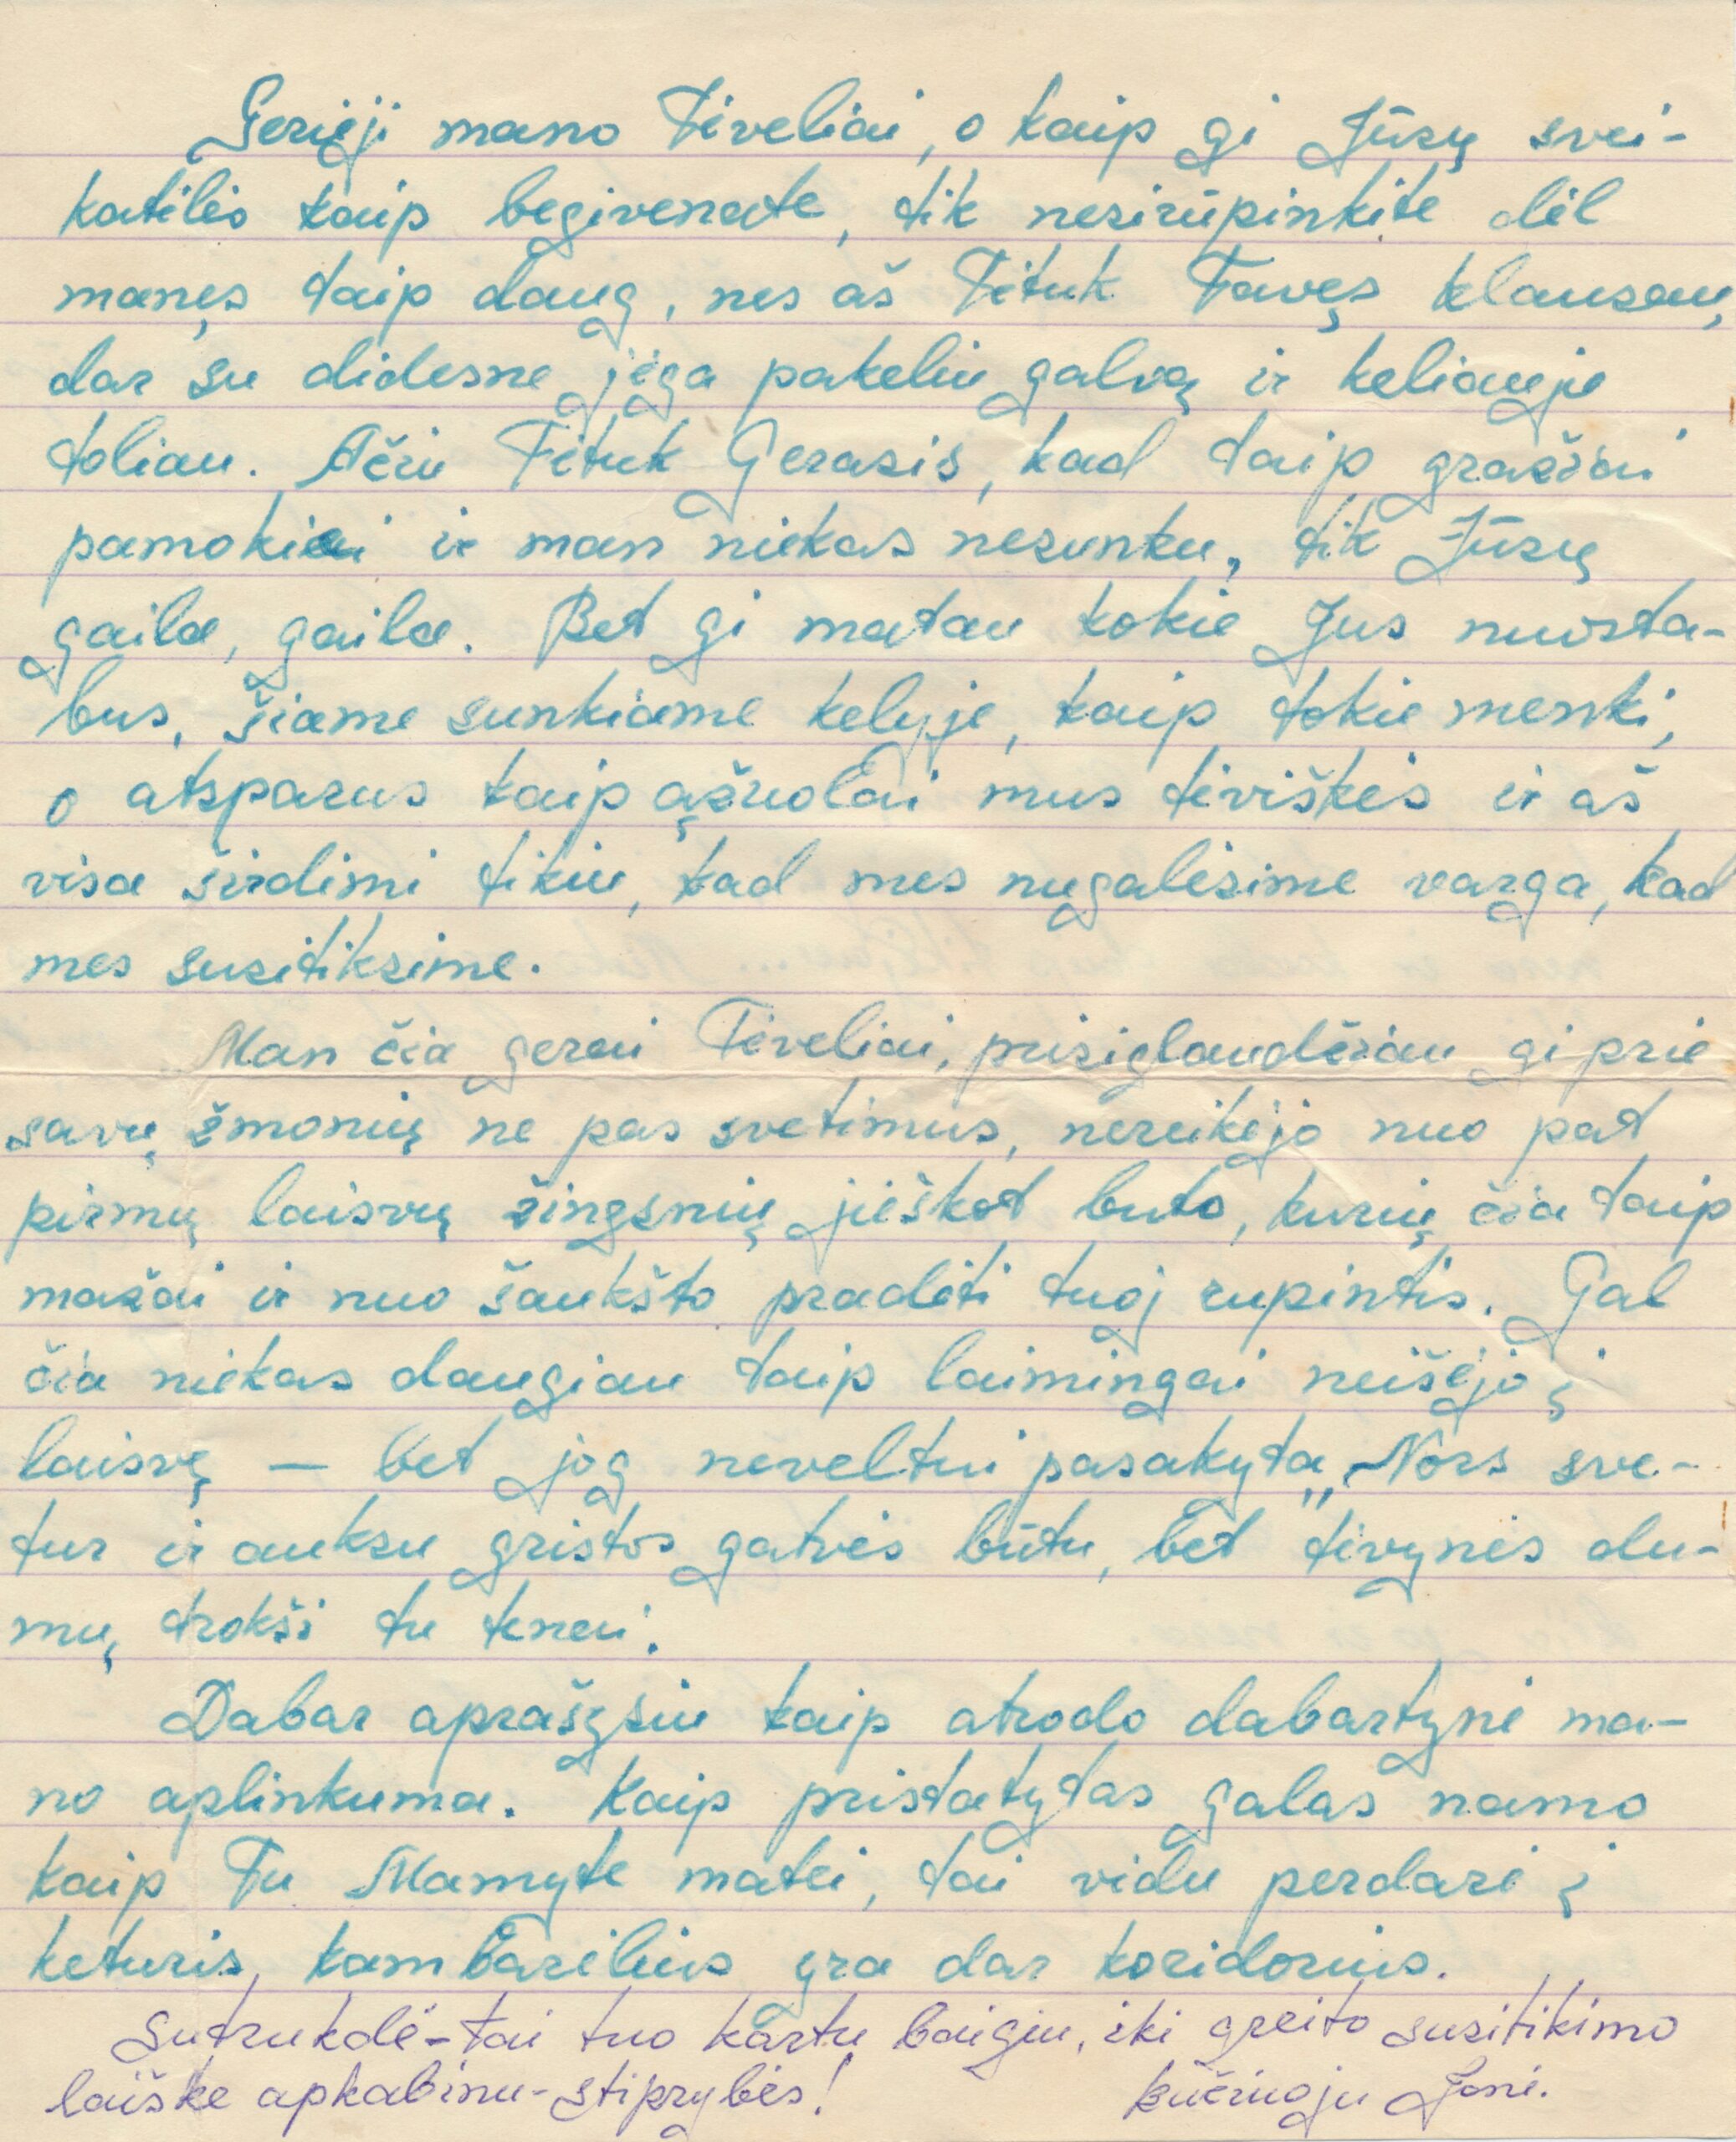 Gerieji mano Tėveliai, o kaip gi Jūsų svei-
katėlės kaip begivenate, tik nesirūpinkite dėl
manęs taip daug, nes aš Tėtuk Tavęs klausau,
dar su didesne jėga pakeliu galvą ir keliauju
toliau. Ačiu Tėtuk Gerasis, kad taip gražiai
pamokiai ir man niekas nesunku, tik Jūsų
gaila, gaila. Bet gi matau kokie Jus nuosta-
bus, šiame sunkiame kelyje, kaip tokie menki,
o atsparus kaip ąžuolai mus tėviškės ir aš
visa širdimi tikiu, kad mes nugalėsime varga, kad
mes susitiksime.
Man čia gerai Tėveliai, prisiglaudžiau gi prie
savų žmonių ne pas svetimus, nereikėjo nuo pat
pirmų laisvų žingsnių jieškot buto, kurių čia taip
mažai ir nuo šaukšto pradėti tuoj rupintis. Gal
čia niekas daugiau taip laimingai neišėjo į
laisvę — bet jog neveltui pasakyta „Nors sve-
tur ir auksu gristos gatvės būtu, bet tėvynės du-
mų trokši tu tenai.
Dabar aprašysiu kaip atrodo dabartynė ma-
no aplinkuma. Kaip pristatytas galas namo
kaip Tu Mamyte matei, tai vidu perdarė į
keturis kambarėlius yra dar koridorius.
Sutrukdė-tai tuo kartu baigiu, iki greito susitikimo
laiške apkabinu-stiprybės! bučiuoju Jonė.